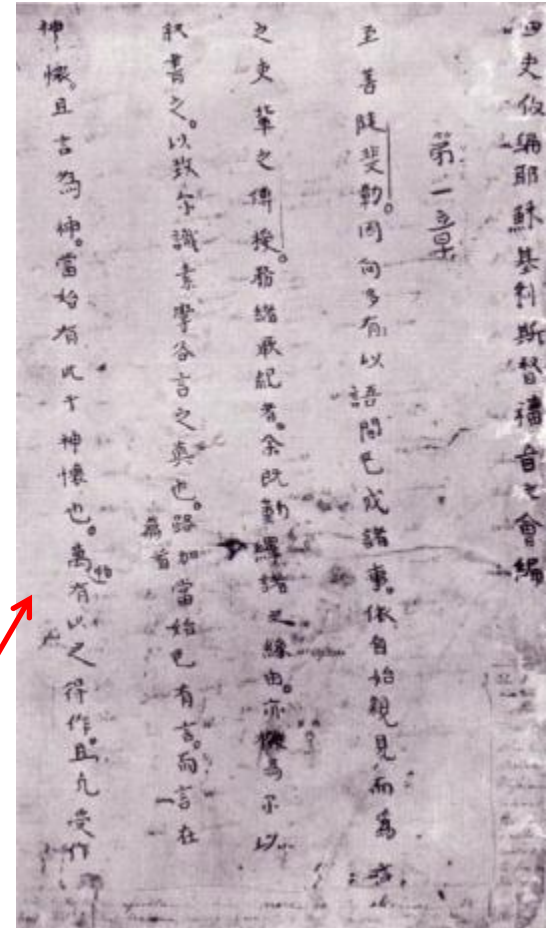 四史攸編耶穌基利斯督福音之會編
第一章
至善陡斐勒。因向多有以語間已成諸事。依自始親見而為
之吏輩之傳授。務緒厥紀者。余既勤繹諸之緣由。亦為尓以
秩書之。以致尓識素學各言之真也。路加當始已有言。而言在
為首
神懷。且言為神。當始有此於神懷也。萬有以之得作。且凡受作